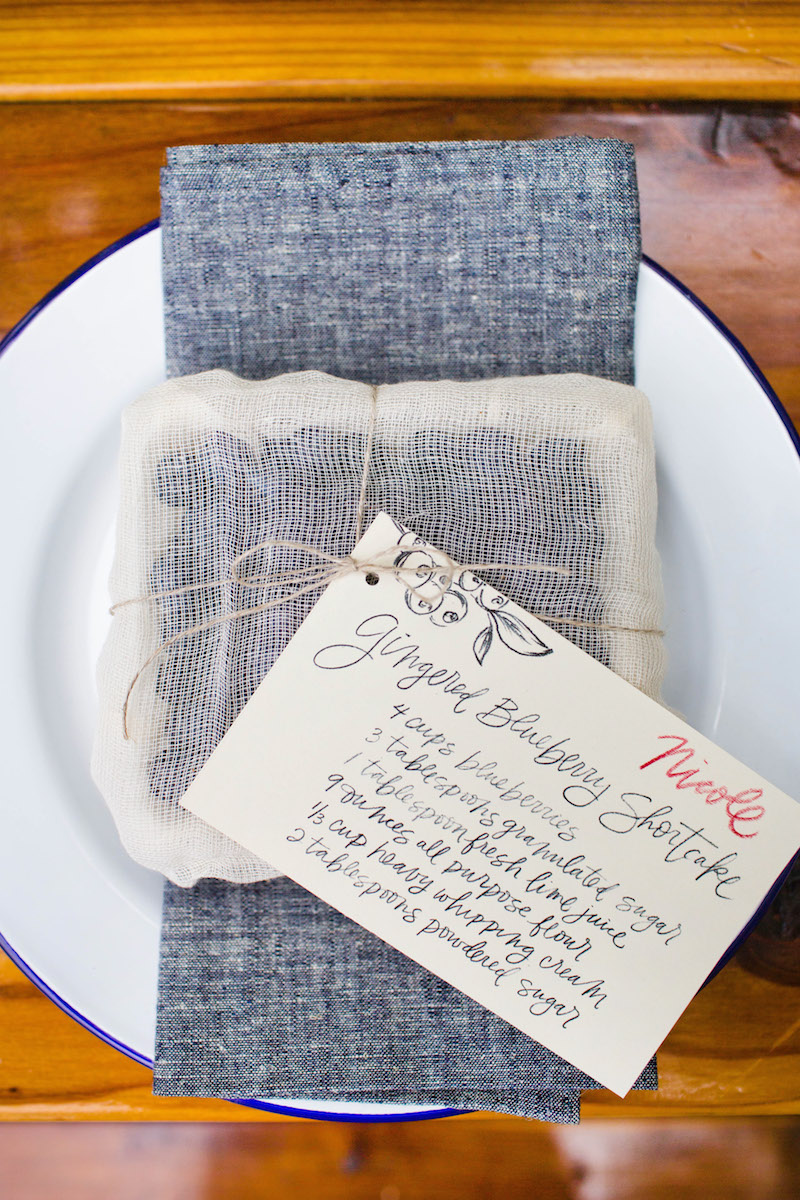 Gingered Blueberry Shortcake
Nicole
4 cups blueberries
3 tablespoons granulated sugar
1 tablespoon fresh lime juice
9 ounces all purpose flour
1/3 cup heavy whipping cream
2 tablespoons powdered sugar